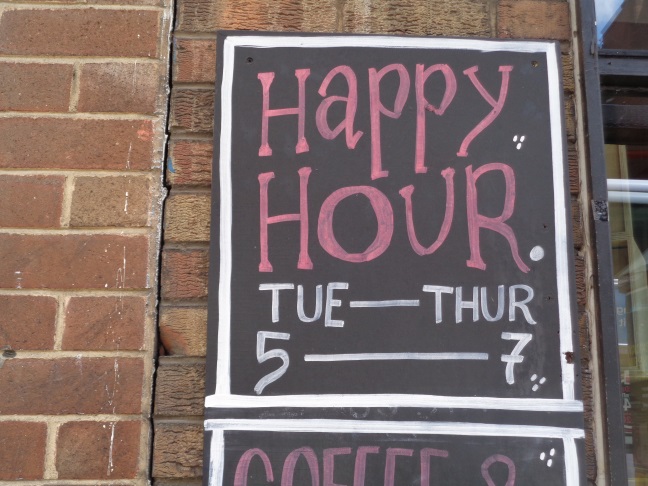 Happy
Hour.
TUE — THUR
5 — 7
COFFEE &